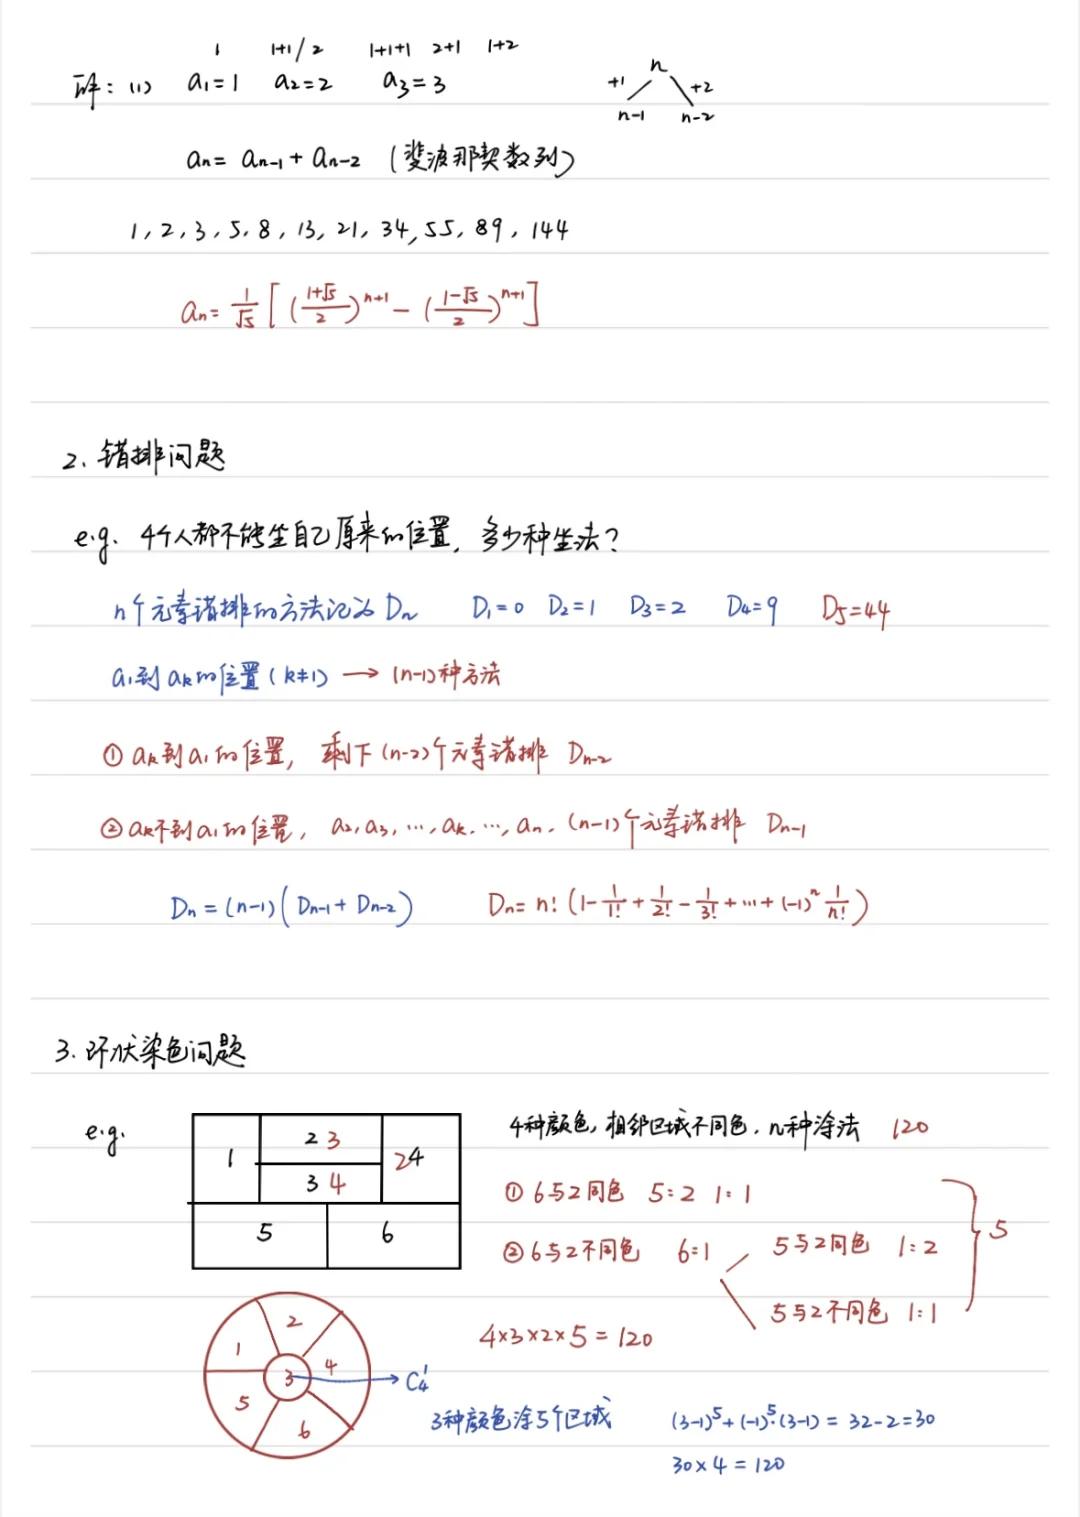 1 1+1/2 1+1+1 2+1 1+2
解：(1) a₁=1 a₂=2 a₃=3
n
+1 +2
n-1 n-2
aₙ= aₙ₋₁+aₙ₋₂ (斐波那契数列)
1, 2, 3, 5, 8, 13, 21, 34, 55, 89, 144
aₙ= 1/√5 [ ((1+√5)/2)ⁿ⁺¹ - ((1-√5)/2)ⁿ⁺¹ ]
2. 错排问题
e.g. 4个人都不能坐自己原来的位置, 多少种坐法?
n个元素错排的方法记为 Dₙ D₁=0 D₂=1 D₃=2 D₄=9 D₅=44
a₁到aₖ的位置(k≠1) → (n-1)种方法
① aₖ到a₁的位置, 剩下(n-2)个元素错排 Dₙ₋₂
② aₖ不到a₁的位置, a₂,a₃,…,aₖ,…,aₙ, (n-1)个元素错排 Dₙ₋₁
Dₙ=(n-1)(Dₙ₋₁+Dₙ₋₂) Dₙ= n! (1-1/1!+1/2!-1/3!+…+(-1)ⁿ 1/n!)
3. 环状染色问题
e.g.
1 2 3 24
3 4
5 6
4种颜色, 相邻区域不同色, n种涂法 120
① 6与2同色 5:2 1:1
② 6与2不同色 6:1 5与2同色 1:2
5与2不同色 1:1
5
4×3×2×5=120
2
1 3 4
5 6
C₄¹
3种颜色涂5个区域 (3-1)⁵+(-1)⁵·(3-1)=32-2=30
30×4=120